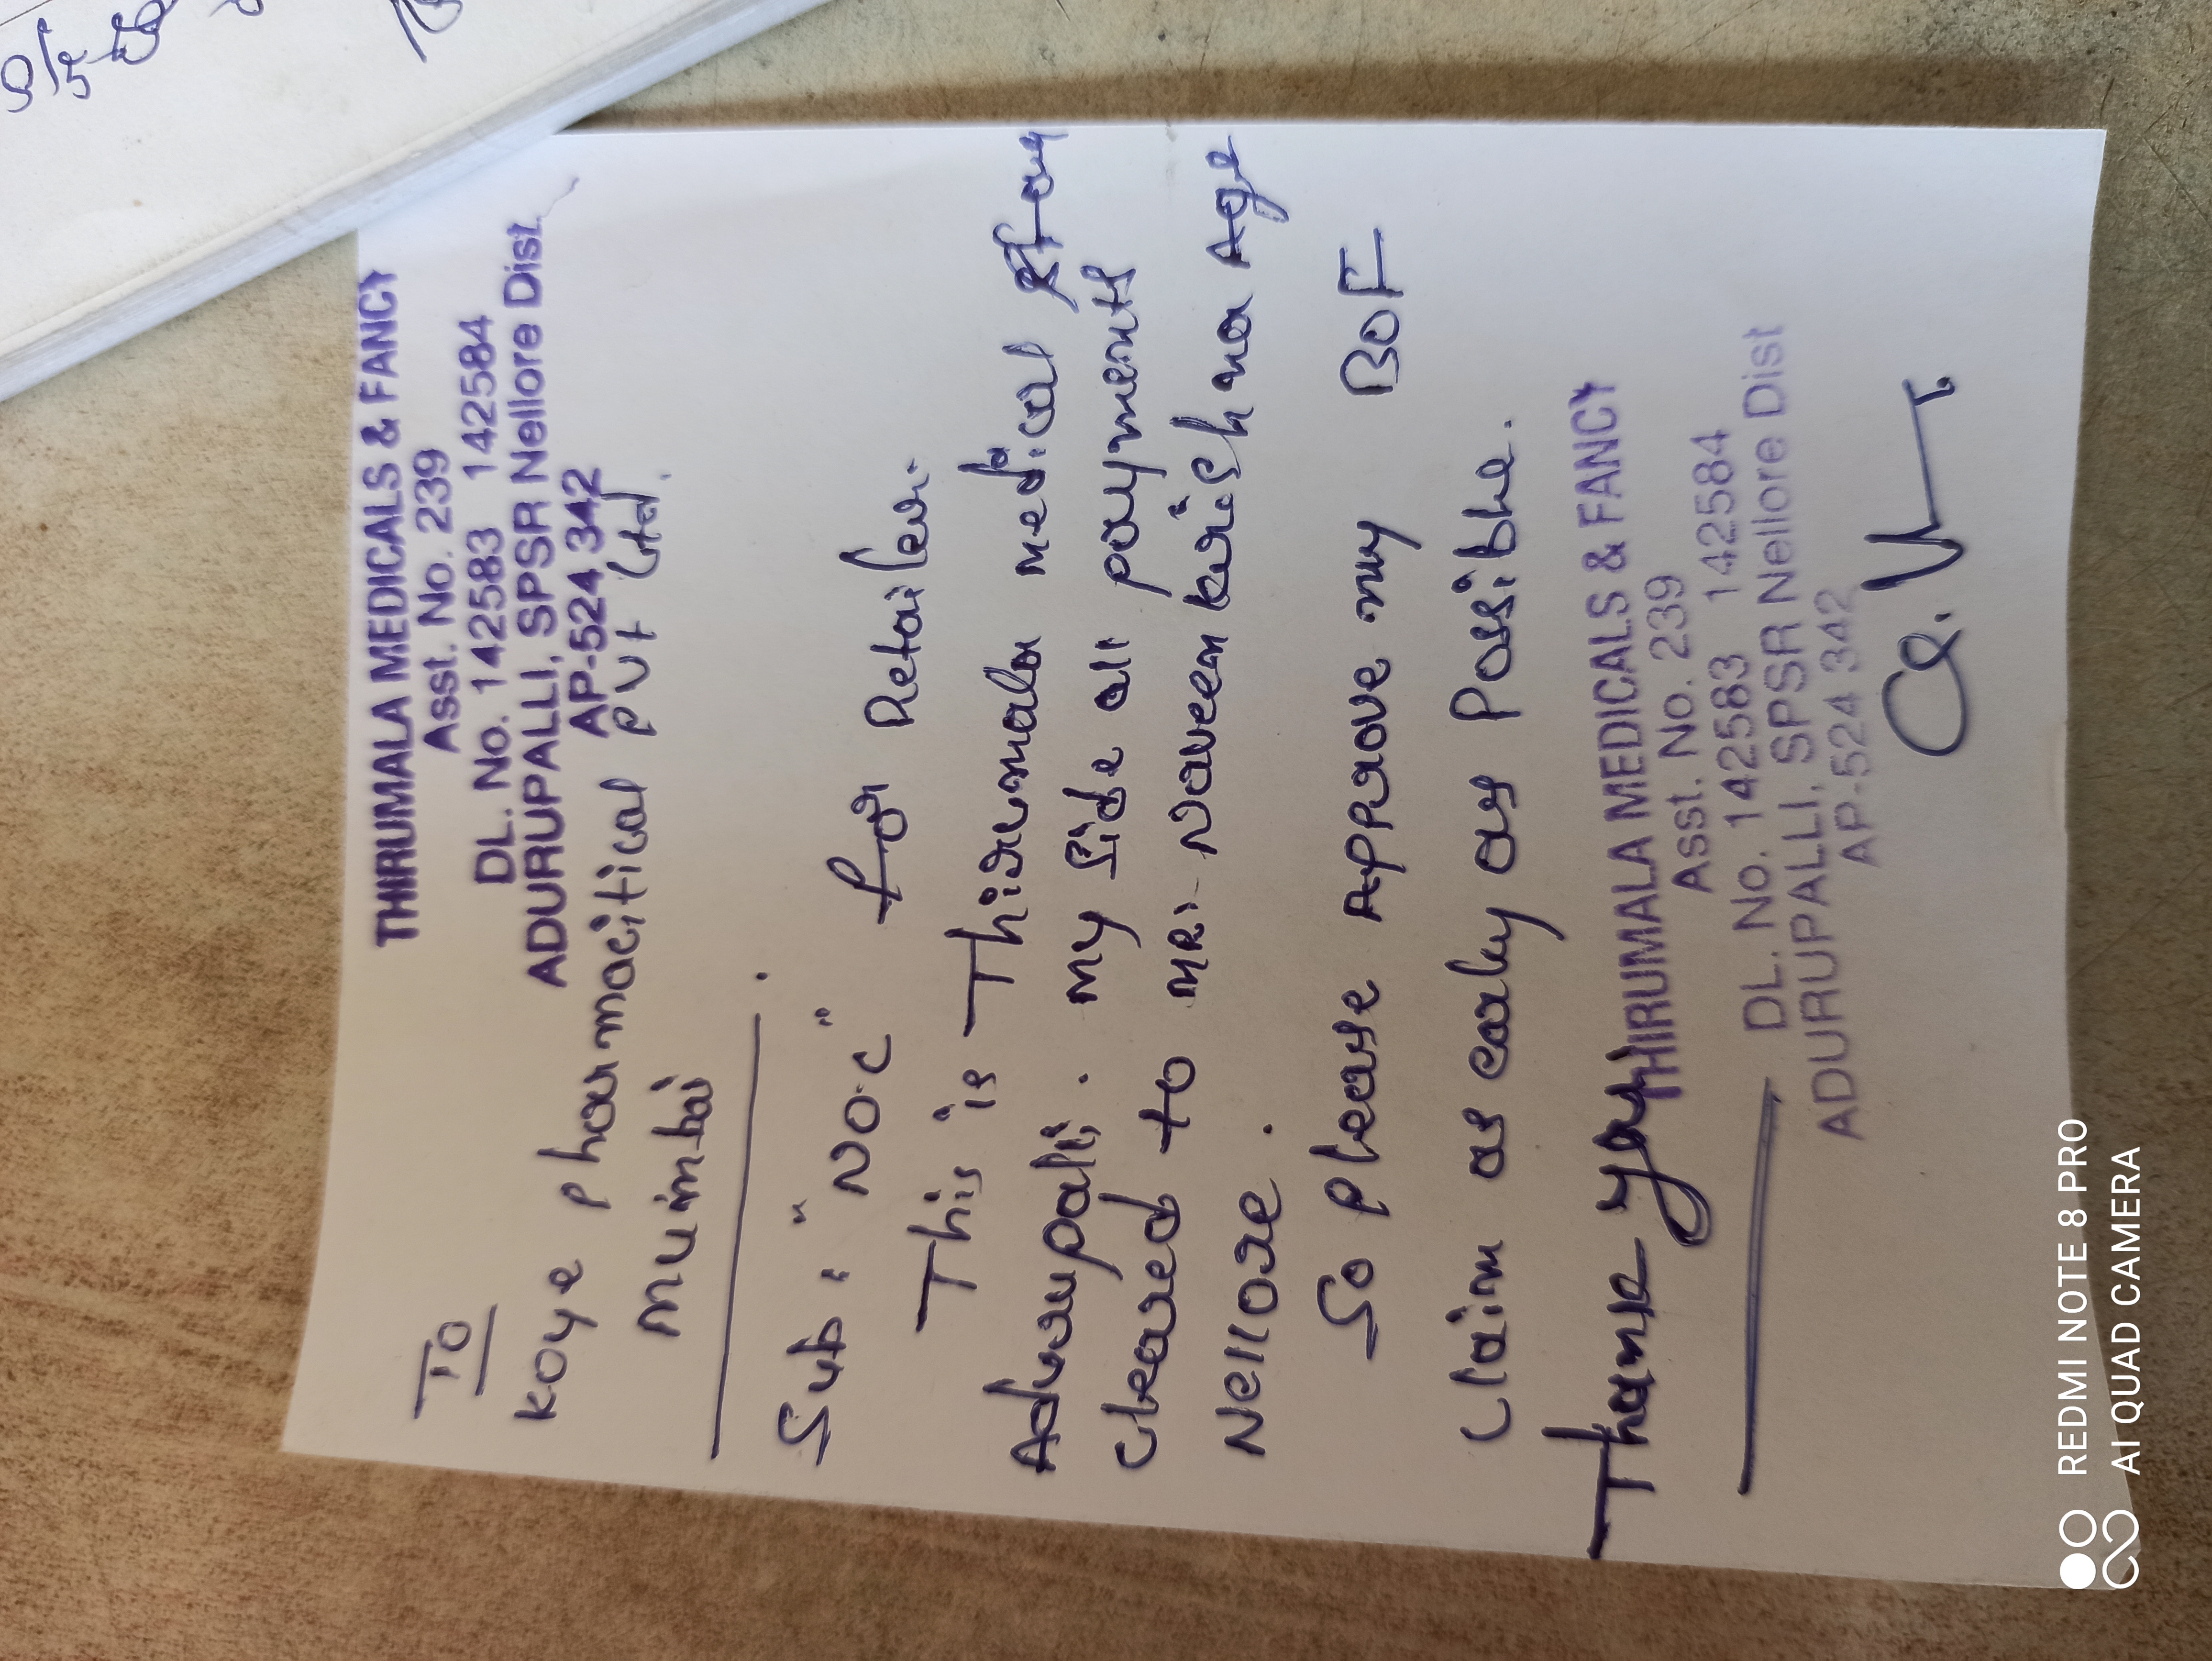 THIRUMALA MEDICALS & FANCY
Asst. No. 239
DL. No. 142583 142584
ADURUPALLI, SPSR Nellore Dist.
AP-524 342
TO
Koye pharmacitical PVT Ltd.
Mumbai
Sub: "NOC" for Retailer.
This is Thirumala medical
Adurupalli. My Side all payments
cleared to MR. Naveen krishna Age
Nellore.
So please approve my BOF
Claim as early as Possible.
Thank you
THIRUMALA MEDICALS & FANCY
Asst. No. 239
DL. No. 142583 142584
ADURUPALLI, SPSR Nellore Dist
AP-524 342
REDMI NOTE 8 PRO
AI QUAD CAMERA